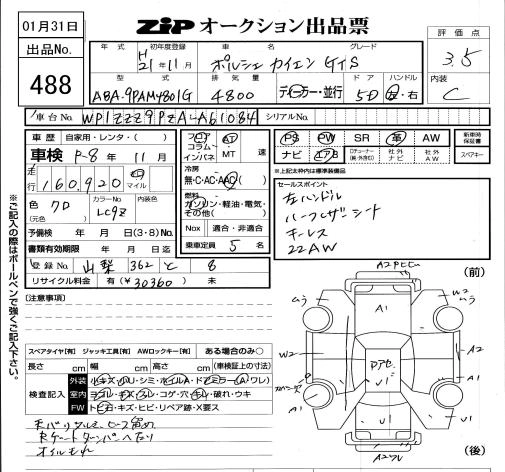 01月31日
出品No.
488
ZiP オークション出品票
評価点
3.5
内装
C
年式 初年度登録 車名 グレード
H 21年11月 ポルシェ カイエン GTS
型式 排気量 ドア ハンドル
ABA-9PAM4801G 4800 ディーラー・並行 5D 左・右
車台No. WP1ZZZ9PZALA61084 シリアルNo.
車歴 自家用・レンタ・( )
車検 R-8年 11月
走行 160,920 km マイル
色 クロ (元色) カラーNo. LC9Z 内装色
予備検 年 月 日(3・8)No.
書類有効期限 年 月 日迄
登録No. 山梨 362 と 8
リサイクル料金 有(¥30360) 未
フロア コラム インパネ AT MT 速
冷房 無・C・AC・AAC
燃料 ガソリン・軽油・電気・その他( )
Nox 適合・非適合
乗車定員 5 名
PS PW SR 革 AW
ナビ エアB Dチューナー(純・外含む) 社外ナビ 社外AW
新車時保証書
スペアキー
*上記太枠内は標準装備品
セールスポイント
左ハンドル
ハーフレザーシート
キーレス
22AW
[注意事項]
スペアタイヤ[有] ジャッキ工具[有] AWロックキー[有] ある場合のみ○
長さ cm 幅 cm 高さ cm (車検証上の寸法)
検査記入
外装 小キズ・小U・シミ・ホイルA・ドアミラー(A・ワレ)
室内 ヨゴレ・キズ・スレ・コゲ・穴・ビレ・破れ・ウキ
FW トビ石・キズ・ヒビ・リペア跡・X要ス
オイルもれ
※ご記入の際はボールペンで強くご記入下さい。
(前)
A2
ムラ
A1
W2
ムラ
W2
A1
A2
U1
A1
A1
U1
A2
(後)